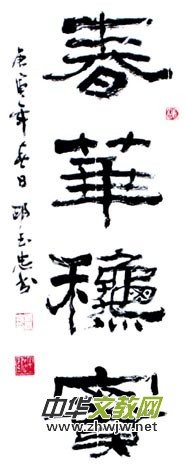 春華龝實
庚寅年春日
中华文教网
www.zhwjw.net